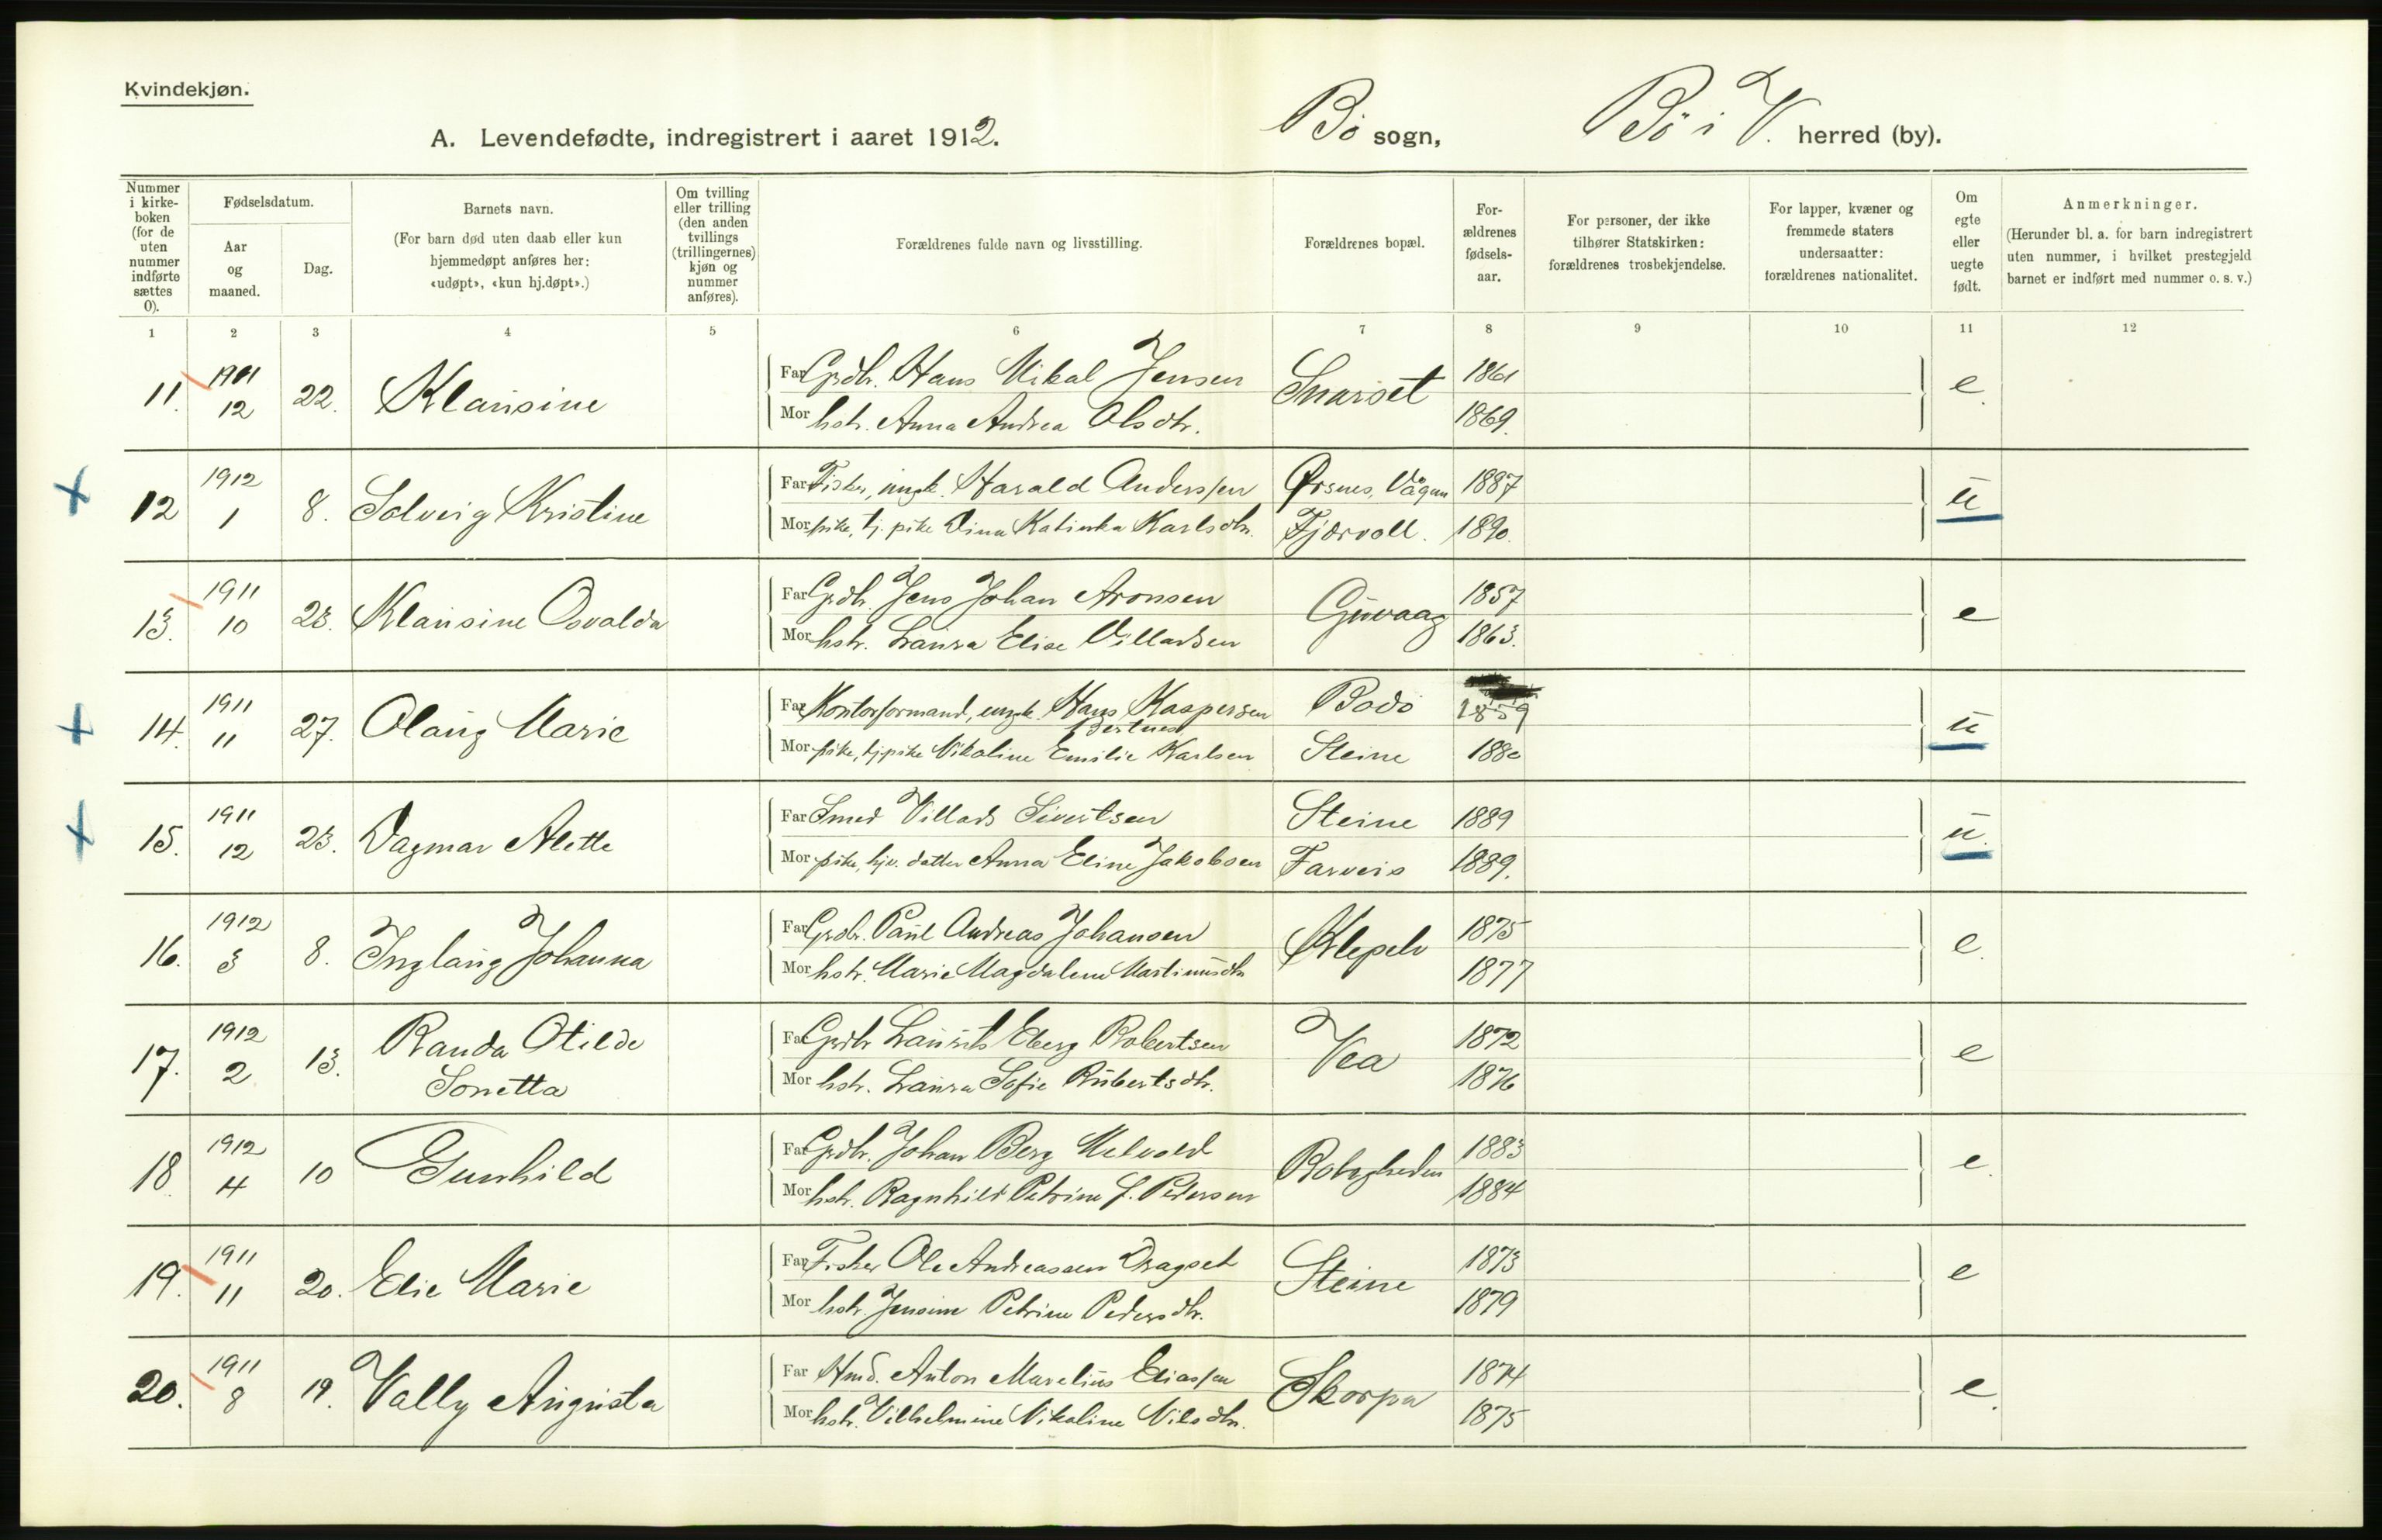 Kvindekjøn.
A. Levendefødte, indregistrert i aaret 1912.
Bö sogn,
Bö i V. herred (by).
Nummer i kirke-boken (for de uten nummer indførte sættes 0).
Fødselsdatum.
Aar og maaned.
Dag.
Barnets navn.
(For barn død uten daab eller kun hjemmedøpt anføres her: «udøpt», «kun hj.døpt».)
Om tvilling eller trilling (den anden tvillings (trillingernes) kjøn og nummer anføres).
Forældrenes fulde navn og livsstilling.
Forældrenes bopæl.
For-ældrenes fødsels-aar.
For personer, der ikke tilhører Statskirken: forældrenes trosbekjendelse.
For lapper, kvæner og fremmede staters undersaatter: forældrenes nationalitet.
Om egte eller uegte født.
Anmerkninger.
(Herunder bl. a. for barn indregistrert uten nummer, i hvilket prestegjeld barnet er indført med nummer o. s. v.)
1 2 3 4 5 6 7 8 9 10 11 12
11. 1911 12 22. Klausine
Far Grdbr. Hans Mikal Jensen Snarset 1861 e.
Mor hstr. Anna Andrea Olsdtr. 1869.
12 1912 1 8. Solveig Kristine
Far Fisker, ungk. Harald Anderssen Ørsnes, Vågan 1887 u
Mor pike, tj. pike Dina Katinka Karlsdtr. Fjærvoll. 1890.
13. 1911 10 23. Klausine Osvalda
Far Grdbr. Jens Johan Aronsen Guvaag 1857 e
Mor hstr. Laura Elise Villadsen 1863.
14. 1911 11 27. Olaug Marie
Far Kontorformand, ungk. Hans Kaspersen Bodö 1859 u
Mor pike, tj.pike Nikoline Emilie Karlsen Steine 1880
15. 1911 12 23. Dagmar Alette
Far Smed Villads Sivertsen Steine 1889 u.
Mor pike, hjv. datter Anna Eline Jakobsen Farveis 1889.
16. 1912 3 8. Inglaug Johanna
Far Grdbr. Paul Andreas Johansen Klepelv 1875 e.
Mor hstr. Marie Magdalene Martinusdtr. 1877
17. 1912 2 13. Randa Otilde Sonetta
Far Grdbr. Laurits Eberg Robertsen Vea 1872 e
Mor hstr. Laura Sofie Rubertsdtr. 1876
18 1912 4 10 Gunhild
Far Grdbr. Johan Berg Melvold 1883 e.
Mor hstr. Ragnhild Petrine J. Petersen 1884
19. 1911 11 20. Elie Marie
Far Fisker Ole Andreassen Dragset Steine 1873 e
Mor hstr. Jensine Petrine Pedersdtr. 1879
20. 1911 8 19. Vally Augusta
Far Hmd. Anton Marelius Eliassen Skorpa 1874 e.
Mor hstr. Vilhelmine Nikoline Nilsdtr. 1875